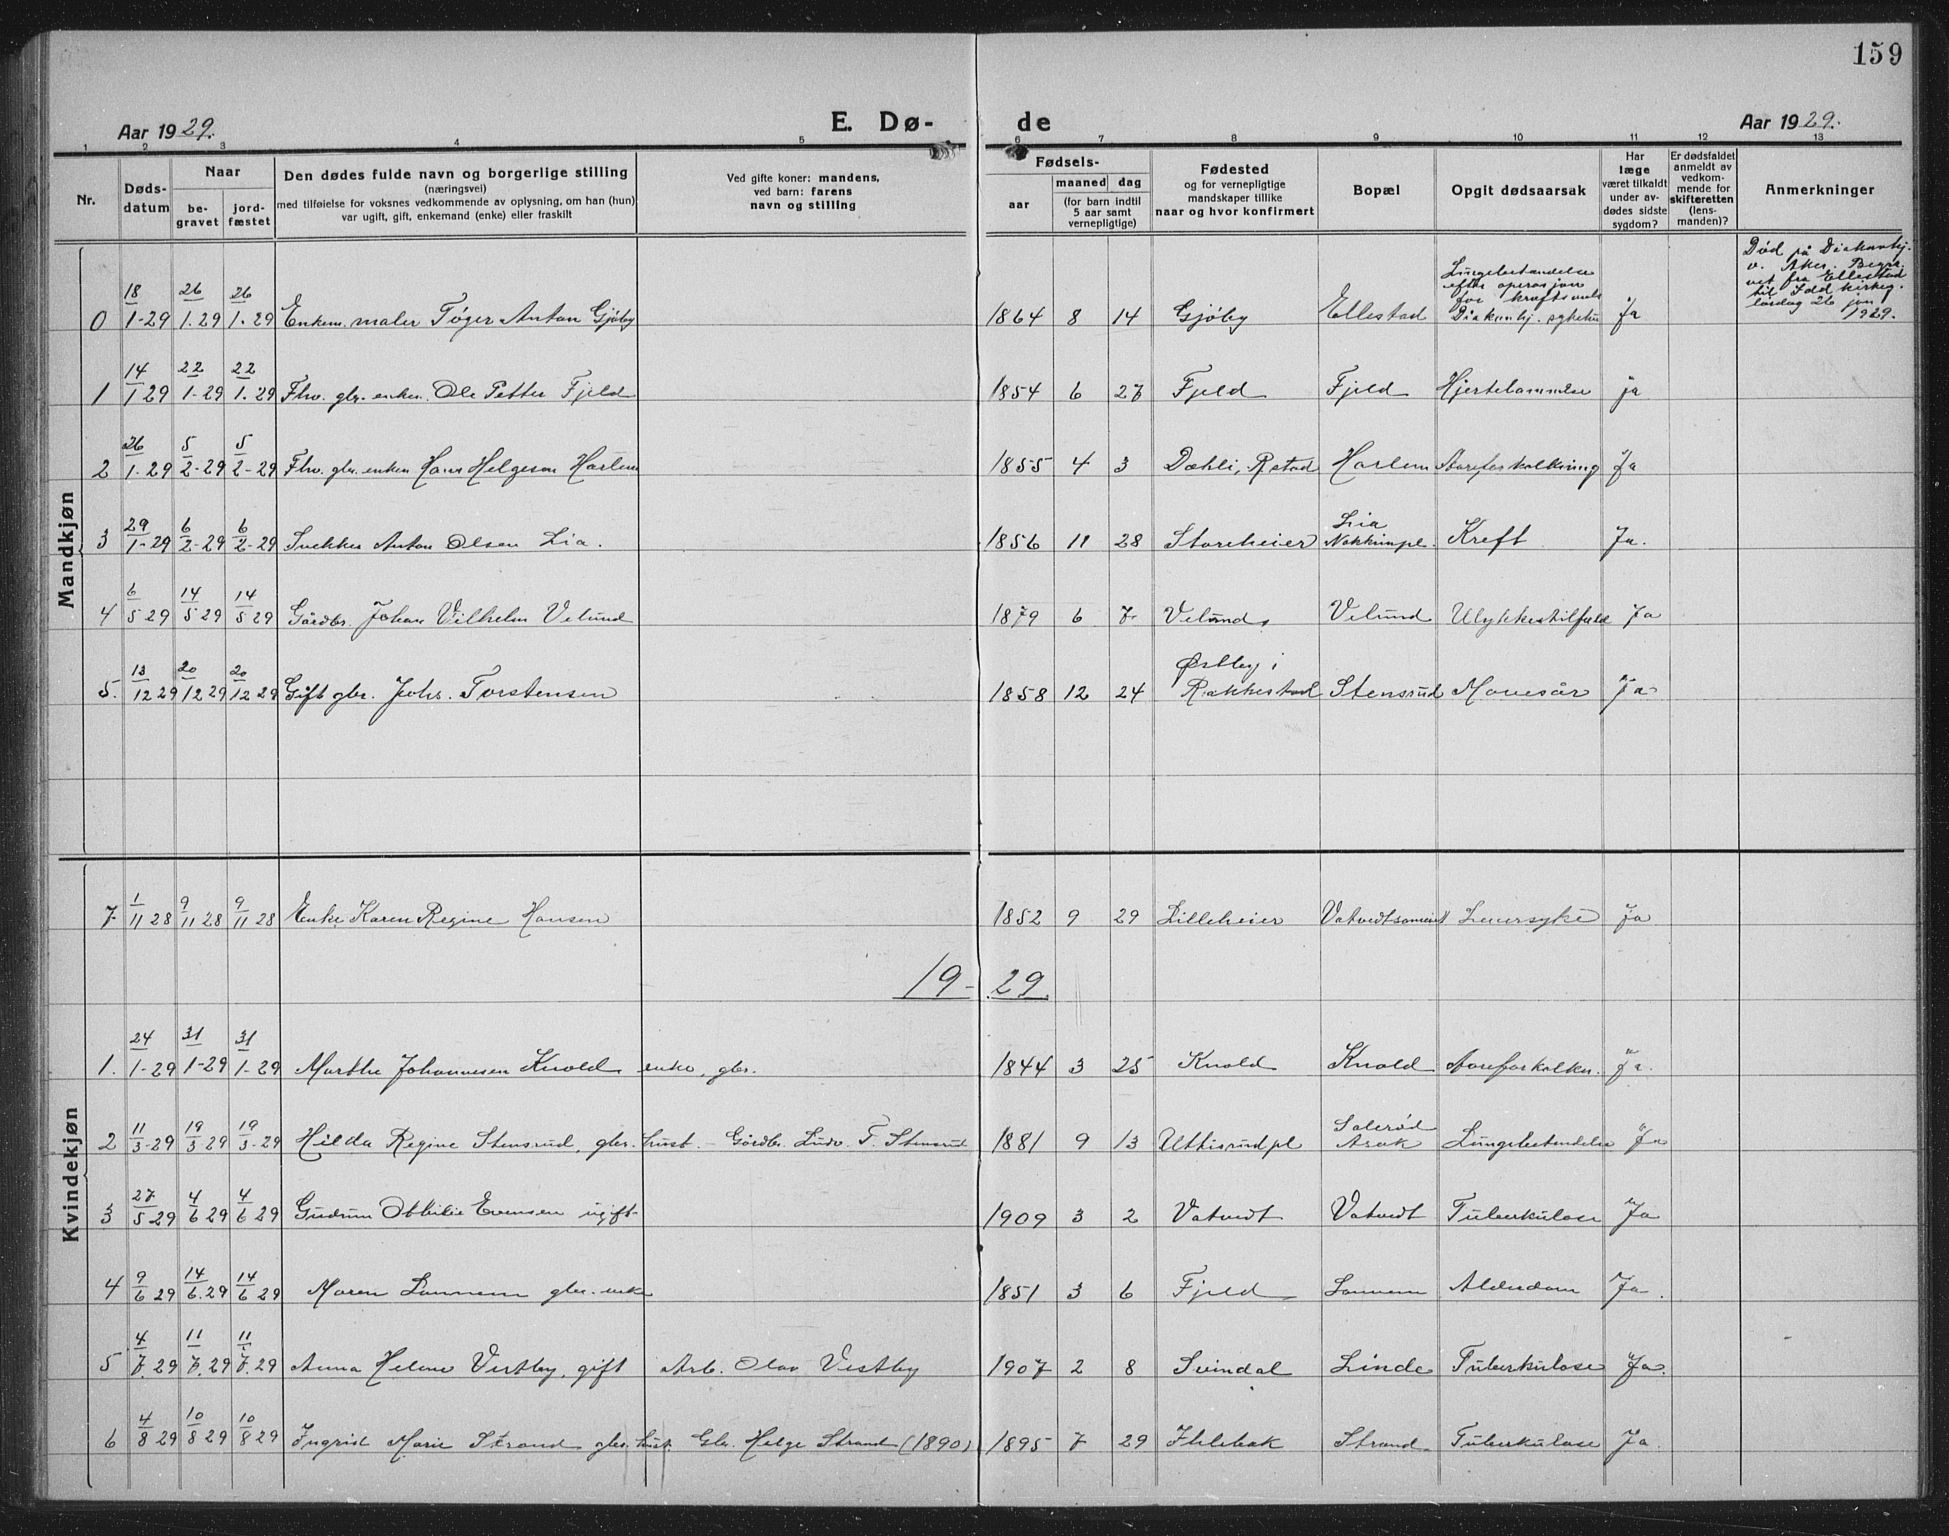 159
Aar 1929. E. Dø- de Aar 1929.
1 2 3 4 5 6 7 8 9 10 11 12 13
Nr.
Døds-
datum
Naar
be-
gravet
jord-
fæstet
Den dødes fulde navn og borgerlige stilling
(næringsvei)
med tilføielse for voksnes vedkommende av oplysning, om han (hun)
var ugift, gift, enkemand (enke) eller fraskilt
Ved gifte koner: mandens,
ved barn: farens
navn og stilling
Fødsels-
aar
maaned dag
(for barn indtil
5 aar samt
vernepligtige)
Fødested
og for vernepligtige
mandskaper tillike
naar og hvor konfirmert
Bopæl
Opgit dødsaarsak
Har
læge
været tilkaldt
under av-
dødes sidste
sygdom?
Er dødsfaldet
anmeldt av
vedkom-
mende for
skifteretten
(lens-
manden)?
Anmerkninger
Mandkjøn
0 18/1-29 26/1.29 26/1.29 Enkem. maler Tøger Anton Gjøby 1864 8 14 Gjøby Ellestad Lungebetændelse
efter operasjon
for kræftsvuls
Diakonhj. sykehus Ja
Død på Diakonhj.
v. Aker. Begra-
vet fra Ellestad
til Idd kirkeg.
lördag 26 jan
1929.
1 14/1 29 22/1-29 22/1.29 Fhv. gbr. enkem. Ole Petter Fjeld 1854 6 27 Fjeld Fjeld Hjertelammelse ja
2 26/1-29 5/2-29 5/2-29 Fhv. gbr. enkem Hans Helgesen Harlem 1855 4 3 Dæhli, R.stad Harlem Aareforkalkning Ja
3 29/1-29 6/2-29 6/2-29 Snekker Anton Olsen Lia. 1856 11 28 Storeheier Lia
Nokkimpl. Kreft Ja.
4 6/5 29 14/5 29 14/5 29 Gårdbr. Johan Vilhelm Velund 1879 6 7 Velund Velund Ulykkestilfæld Ja
5. 13/12 29 20/12 29 20/12 29 Gift gbr. Johs. Torstensen 1858 12 24 Østby i
Rakkestad Stensrud Mavesår Ja
Kvindekjøn
7 1/11 28 9/11 28 9/11 28 Enke Karen Regine Hansen 1852 9 29 Lilleheier Leversyke Ja
19- 29.
1. 24/1-29 31/1-29 31/1-29 Marthe Johannesen Knold enke, gbr. 1844 3 25 Knold Knold Aareforkalkn. Ja.
2 11/3-29 19/3 29 19/3-29 Hilda Regine Stensrud, gbr. hust. - Gårdbr. Ludv. T. Stensrud 1881 9 13 Uttisrudpl Solerød
Asak Lungebetændelse Ja
3 27/5 29 4/6 29 4/6 29 Gudrun Othilie Evensen ugift 1909 3 2 Vatvedt Vatvedt Tuberkulose Ja
4 9/6 29 14/6.29 14/6 29 Maren Lannem gbr. enke 1851 3 6 Fjeld Lannem Alderdom Ja.
5 4/7.29 11/7.29 11/7.29 Anna Helene Vestby, gift Arb. Olav Vestby 1907 2 8 Svindal Linde Tuberkulose Ja.
6 4/8 29 10/8 29 10/8 29 Ingrid Marie Strand gbr. hust. Gbr. Helge Strand (1890) 1895 7 29 Ihlebæk Strand Tuberkulose Ja.